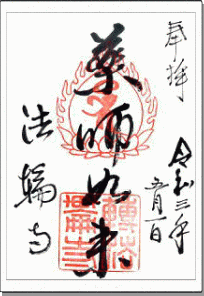 奉拝
令和三年
五月一日
薬師如来
法輪寺